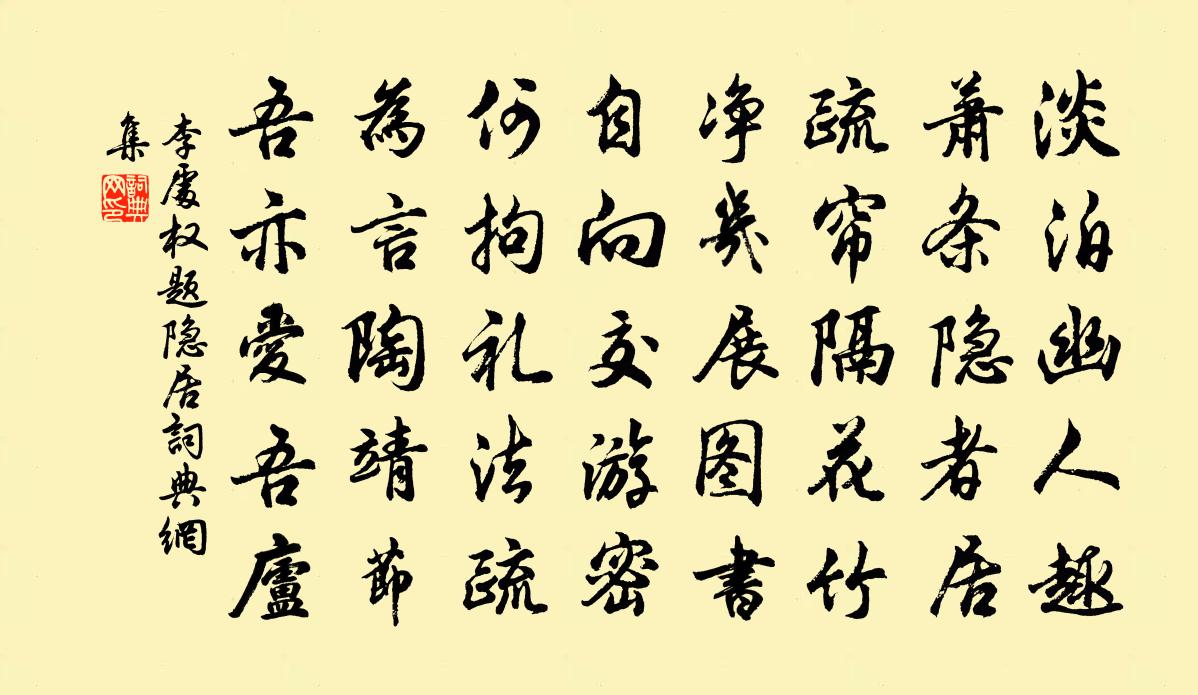 淡泊幽人趣
萧条隐者居
疏帘隔花竹
净几展图书
自向交游密
何拘礼法疏
为言陶靖节
吾亦爱吾廬
李處权题隐居詞典網
集
詞典
网印